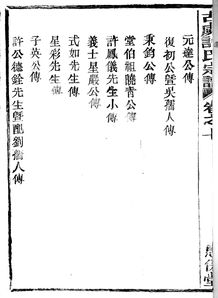 許氏宗譜
元達公傳
復初公暨吳孺人傳
秉鈞公傳
堂伯祖曉青公傳
許鳳儀先生小傳
義士星嚴公傳
式如先生傳
星彩先生傳
子英公傳
許公德銓先生暨配劉孺人傳